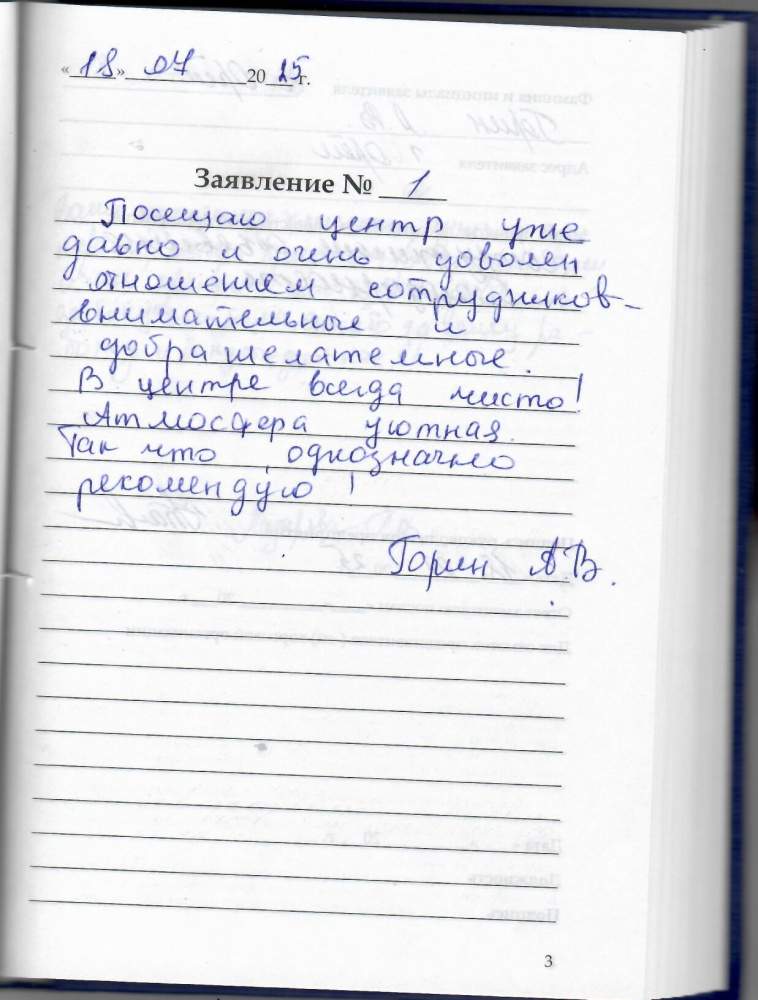 «18» 07 2025 г.
Заявление № 1
Посещаю центр уже
давно и очень доволен
отношением сотрудников-
внимательные и
доброжелательные.
В центре всегда чисто!
Атмосфера уютная.
Так что однозначно
рекомендую!
Горин А.В.
3